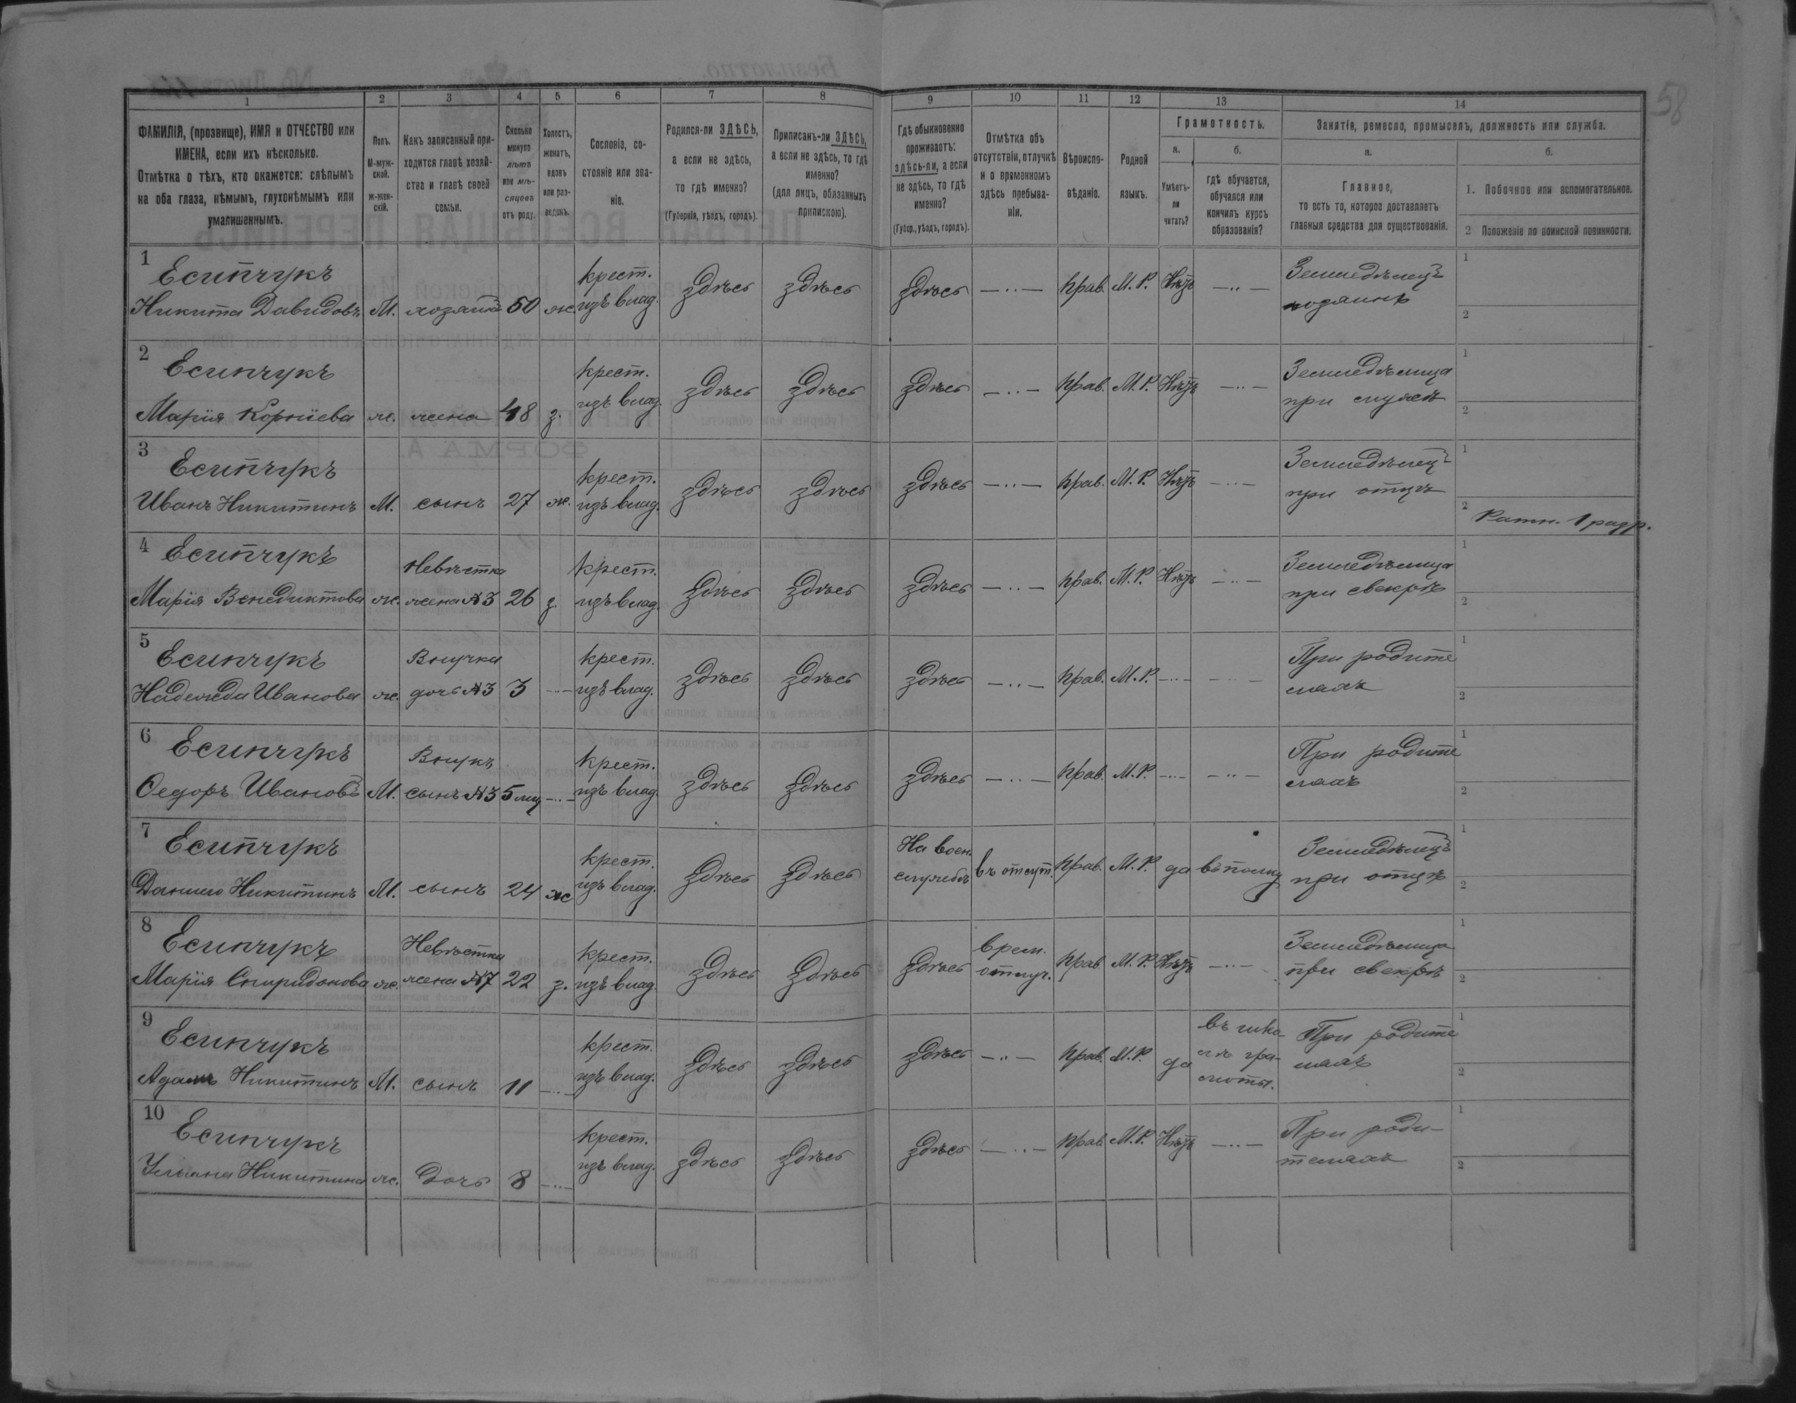 58
1 2 3 4 5 6 7 8 9 10 11 12 13 14
ФАМИЛІЯ, (прозвище), ИМЯ и ОТЧЕСТВО или
ИМЕНА, если ихъ нѣсколько.
Отмѣтка о тѣхъ, кто окажется: слѣпымъ
на оба глаза, нѣмымъ, глухонѣмымъ или
умалишеннымъ.
Полъ.
М-муж-
ской.
ж-жен-
скій.
Какъ записанный при-
ходится главѣ хозяй-
ства и главѣ своей
семьи.
Сколько
минуло
лѣтъ
или мѣ-
сяцевъ
отъ роду.
Холостъ,
женатъ,
вдовъ
или раз-
веденъ.
Сословіе, со-
стояніе или зва-
ніе.
Родился-ли ЗДѢСЬ,
а если не здѣсь,
то гдѣ именно?
(Губернія, уѣздъ, городъ).
Приписанъ-ли ЗДѢСЬ,
а если не здѣсь, то гдѣ
именно?
(для лицъ, обязанныхъ
припискою).
Гдѣ обыкновенно
проживаетъ:
здѣсь-ли, а если
не здѣсь, то гдѣ
именно?
(Губер., уѣздъ, городъ).
Отмѣтка объ
отсутствіи, отлучкѣ
и о временномъ
здѣсь пребыва-
ніи.
Вѣроиспо-
вѣданіе.
Родной
языкъ.
Грамотность.
а.
Умѣетъ-
ли
читать?
б.
гдѣ обучается,
обучался или
кончилъ курсъ
образованія?
Занятіе, ремесло, промыселъ, должность или служба.
а.
Главное,
то есть то, которое доставляетъ
главныя средства для существованія.
б.
1. Побочное или вспомогательное.
2 Положеніе по воинской повинности.
1 Есипчукъ крест. Земледѣлецъ 1
Никита Давидовъ М. хозяинъ 50 ж. изъ влад. здѣсь здѣсь здѣсь —..— прав. М.Р. Нѣтъ —..— хозяинъ 2
2 Есипчукъ крест. Земледѣлица 1
Марія Корніева ж. жена 48 з. изъ влад. здѣсь здѣсь здѣсь —..— прав. М.Р. Нѣтъ —..— при мужѣ 2
3 Есипчукъ крест. Земледѣлецъ 1
Иванъ Никитинъ М. сынъ 27 ж. изъ влад. здѣсь здѣсь здѣсь —..— прав. М.Р. Нѣтъ —..— при отцѣ 2 Ратн. 1 разр.
4 Есипчукъ Невѣстка крест. Земледѣлица 1
Марія Венедиктова ж. жена №3 26 з. изъ влад. здѣсь здѣсь здѣсь —..— прав. М.Р. Нѣтъ —..— при свекрѣ 2
5 Есипчукъ Внучка крест. При родите 1
Надежда Иванова ж. дочь №3 3 —..— изъ влад. здѣсь здѣсь здѣсь —..— прав. М.Р. —..— —..— ляхъ 2
6 Есипчукъ Внукъ крест. При родите 1
Ѳедоръ Ивановъ М. сынъ №3 5 мц —..— изъ влад. здѣсь здѣсь здѣсь —..— прав. М.Р. —..— —..— ляхъ 2
7 Есипчукъ крест. На воен. Земледѣлецъ 1
Данило Никитинъ М. сынъ 24 ж изъ влад. здѣсь здѣсь службѣ въ отсут. прав. М.Р. да въ полку при отцѣ 2
8 Есипчукъ Невѣстка крест. врем. Земледѣлица 1
Марія Спиридонова ж. жена №7 22 з. изъ влад. здѣсь здѣсь здѣсь отлуч. прав М.Р. Нѣтъ —..— при свекрѣ 2
9 Есипчукъ крест. въ шко- При родите 1
Адамъ Никитинъ М. сынъ 11 —..— изъ влад. здѣсь здѣсь здѣсь —..— прав. М.Р. да лѣ гра- ляхъ 2
моты.
10 Есипчукъ крест. При роди- 1
Ульяна Никитина ж. дочь 8 —..— изъ влад. здѣсь здѣсь здѣсь —..— прав. М.Р. Нѣтъ —..— теляхъ 2